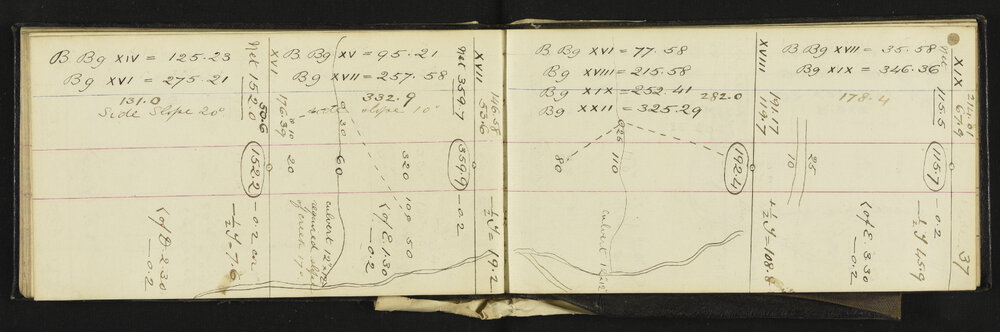 B Bg XIV = 125.23
Bg XVI = 275.21
131.0
Side Slope 20°
Net 152.0
50.6
152.2
- 0.2
XVI
176.39
20
B Bg XV = 95.21
Bg XVII = 257.58
332.9
slope 10°
30
60
320
100
50
culvert 12"
required slope
of creek
∠ of E 1.30
— 0.2
∠ of D 2.30
— 0.2
Net 359.7
359.9
- 0.2
XVII
146.58
53.6
- ½ y = 19.2
B Bg XVI = 77.58
Bg XVIII = 215.58
Bg XIX = 252.41
Bg XXII = 325.29
282.0
925
110
80
culvert 12"
192.4
XVIII
191.17
114.7
+ ½ y = 108.8
B Bg XVII = 35.58
Bg XIX = 346.36
178.4
25
10
Net 115.5
115.7
- 0.2
∠ of E 3.30
— 0.2
- ½ y 45.9
XIX
214.01
67.9
37